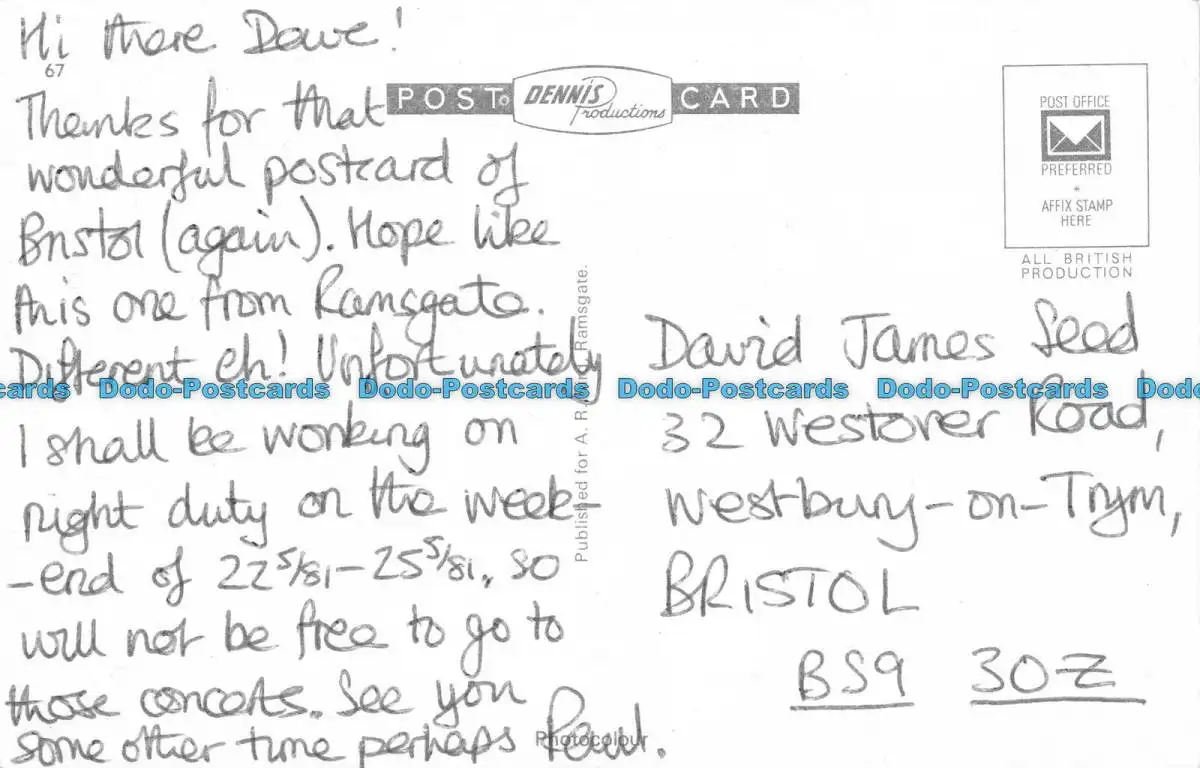 Hi there Dave!
67
Thanks for that
wonderful postcard of
Bristol (again). Hope like
this one from Ramsgate.
Different eh! Unfortunately
I shall be working on
night duty on the week-
-end of 22 5/81 – 25 5/81, so
will not be free to go to
those concerts. See you
some other time perhaps Paul.
POST CARD
DENNIS
Productions
POST OFFICE
PREFERRED
*
AFFIX STAMP
HERE
ALL BRITISH
PRODUCTION
Published for A. R. Ramsgate.
Photocolour
David James Seed
32 Westover Road,
Westbury-on-Trym,
BRISTOL
BS9 3OZ
ards Dodo-Postcards Dodo-Postcards Dodo-Postcards Dodo-Postcards Dodo